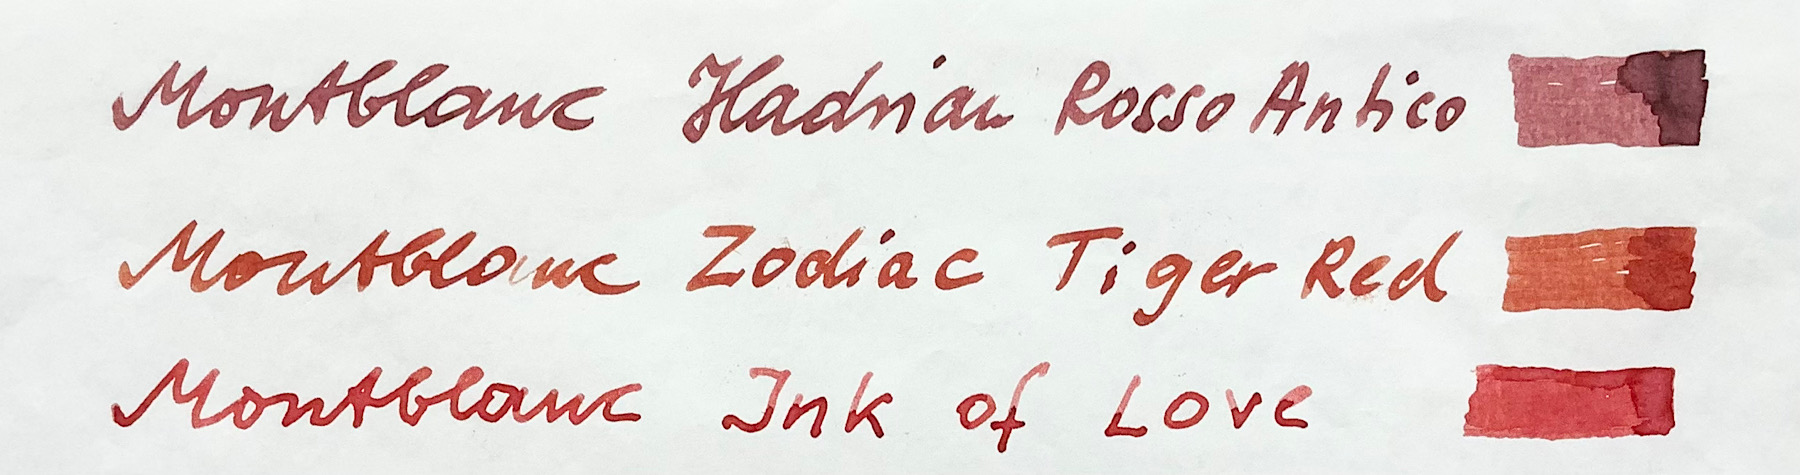 Montblanc Hadrian Rosso Antico
Montblanc Zodiac Tiger Red
Montblanc Ink of Love